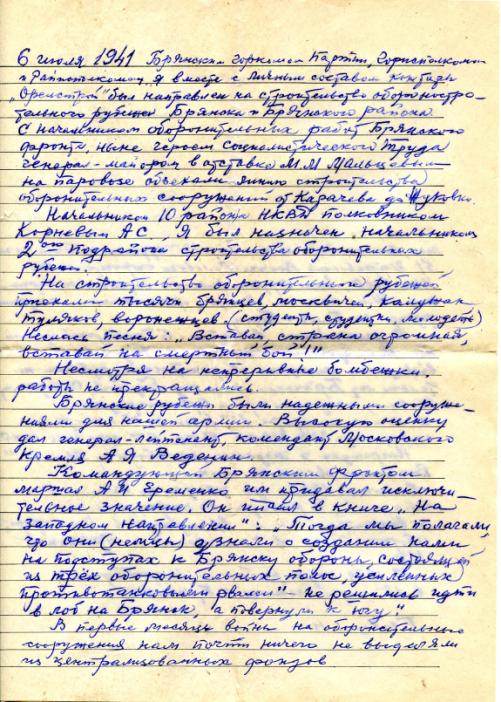 6 июля 1941 Брянским горкомом Партии, Горисполкомом
и Райисполкомом я вместе с личным составом конторы
„Оргстрой" был направлен на строительство оборонстро-
тельного рубежа Брянска и Брянского района.
С начальником оборонительных работ Брянского
фронта, ныне героем социалистического труда
генерал-майором в отставке М.М Мальцевым
на паровозе объехали линию строительства
оборонительных сооружений от Карачева до Жуковки.
Начальником 10 района НКВД полковником
Корневым А С, я был назначен начальником
2ого подрайона строительства оборонительных
рубежей.
На строительство оборонительных рубежей
приехали тысячи брянцев, москвичей, калужан
туляков, воронежцев (студенты, студентки, молодежь)
Неслась песня: „Вставай страна огромная,
вставай на смертный бой!"
Несмотря на непрерывные бомбежки
работы не прекращались.
Брянские рубежи были надежными сооруже-
ниями для нашей армии. Высокую оценку
дал генерал-лейтенант, комендант Московского
Кремля А Я Веденин.
Командующий Брянским фронтом
маршал А И Еременко им придавал исключи-
тельное значение. Он писал в книге „На
западном направлении": „Тогда мы полагали,
что они (немцы) узнали о создании нами
на подступах к Брянску обороны, состоящей
из трёх оборонительных полос, усиленных
противотанковыми рвами" не решились идти
в лоб на Брянск, а повернули к югу."
В первые месяцы войны на оборонительные
сооружения нам почти ничего не выделяли
из централизованных фондов